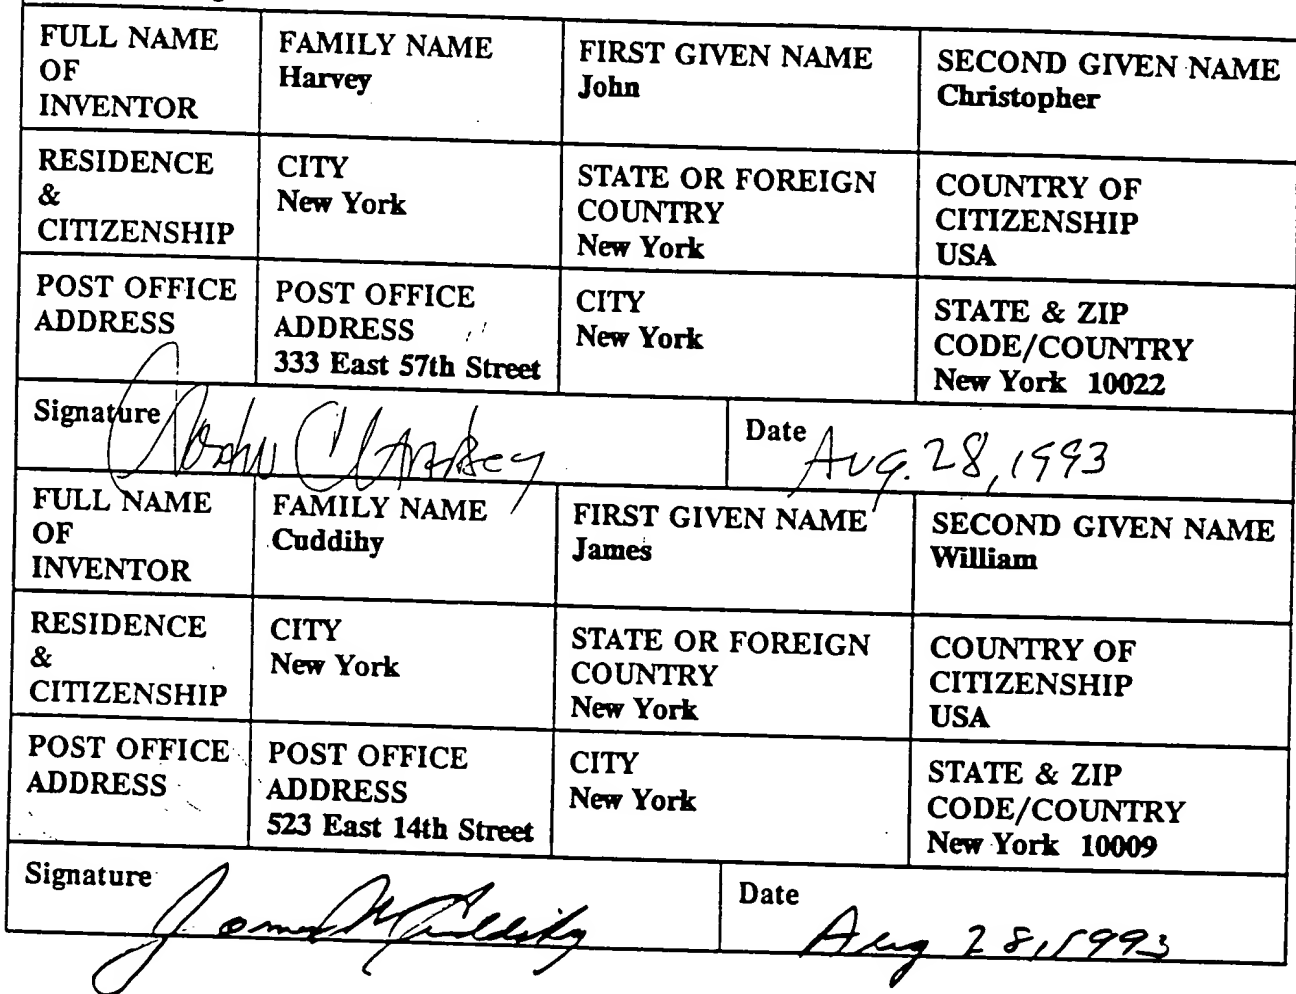 FULL NAME
OF
INVENTOR
FAMILY NAME
Harvey
FIRST GIVEN NAME
John
SECOND GIVEN NAME
Christopher
RESIDENCE
&
CITIZENSHIP
CITY
New York
STATE OR FOREIGN
COUNTRY
New York
COUNTRY OF
CITIZENSHIP
USA
POST OFFICE
ADDRESS
POST OFFICE
ADDRESS
333 East 57th Street
CITY
New York
STATE & ZIP
CODE/COUNTRY
New York 10022
Signature John C Harvey
Date Aug. 28, 1993
FULL NAME
OF
INVENTOR
FAMILY NAME
Cuddihy
FIRST GIVEN NAME
James
SECOND GIVEN NAME
William
RESIDENCE
&
CITIZENSHIP
CITY
New York
STATE OR FOREIGN
COUNTRY
New York
COUNTRY OF
CITIZENSHIP
USA
POST OFFICE
ADDRESS
POST OFFICE
ADDRESS
523 East 14th Street
CITY
New York
STATE & ZIP
CODE/COUNTRY
New York 10009
Signature James W Cuddihy
Date Aug 28, 1993